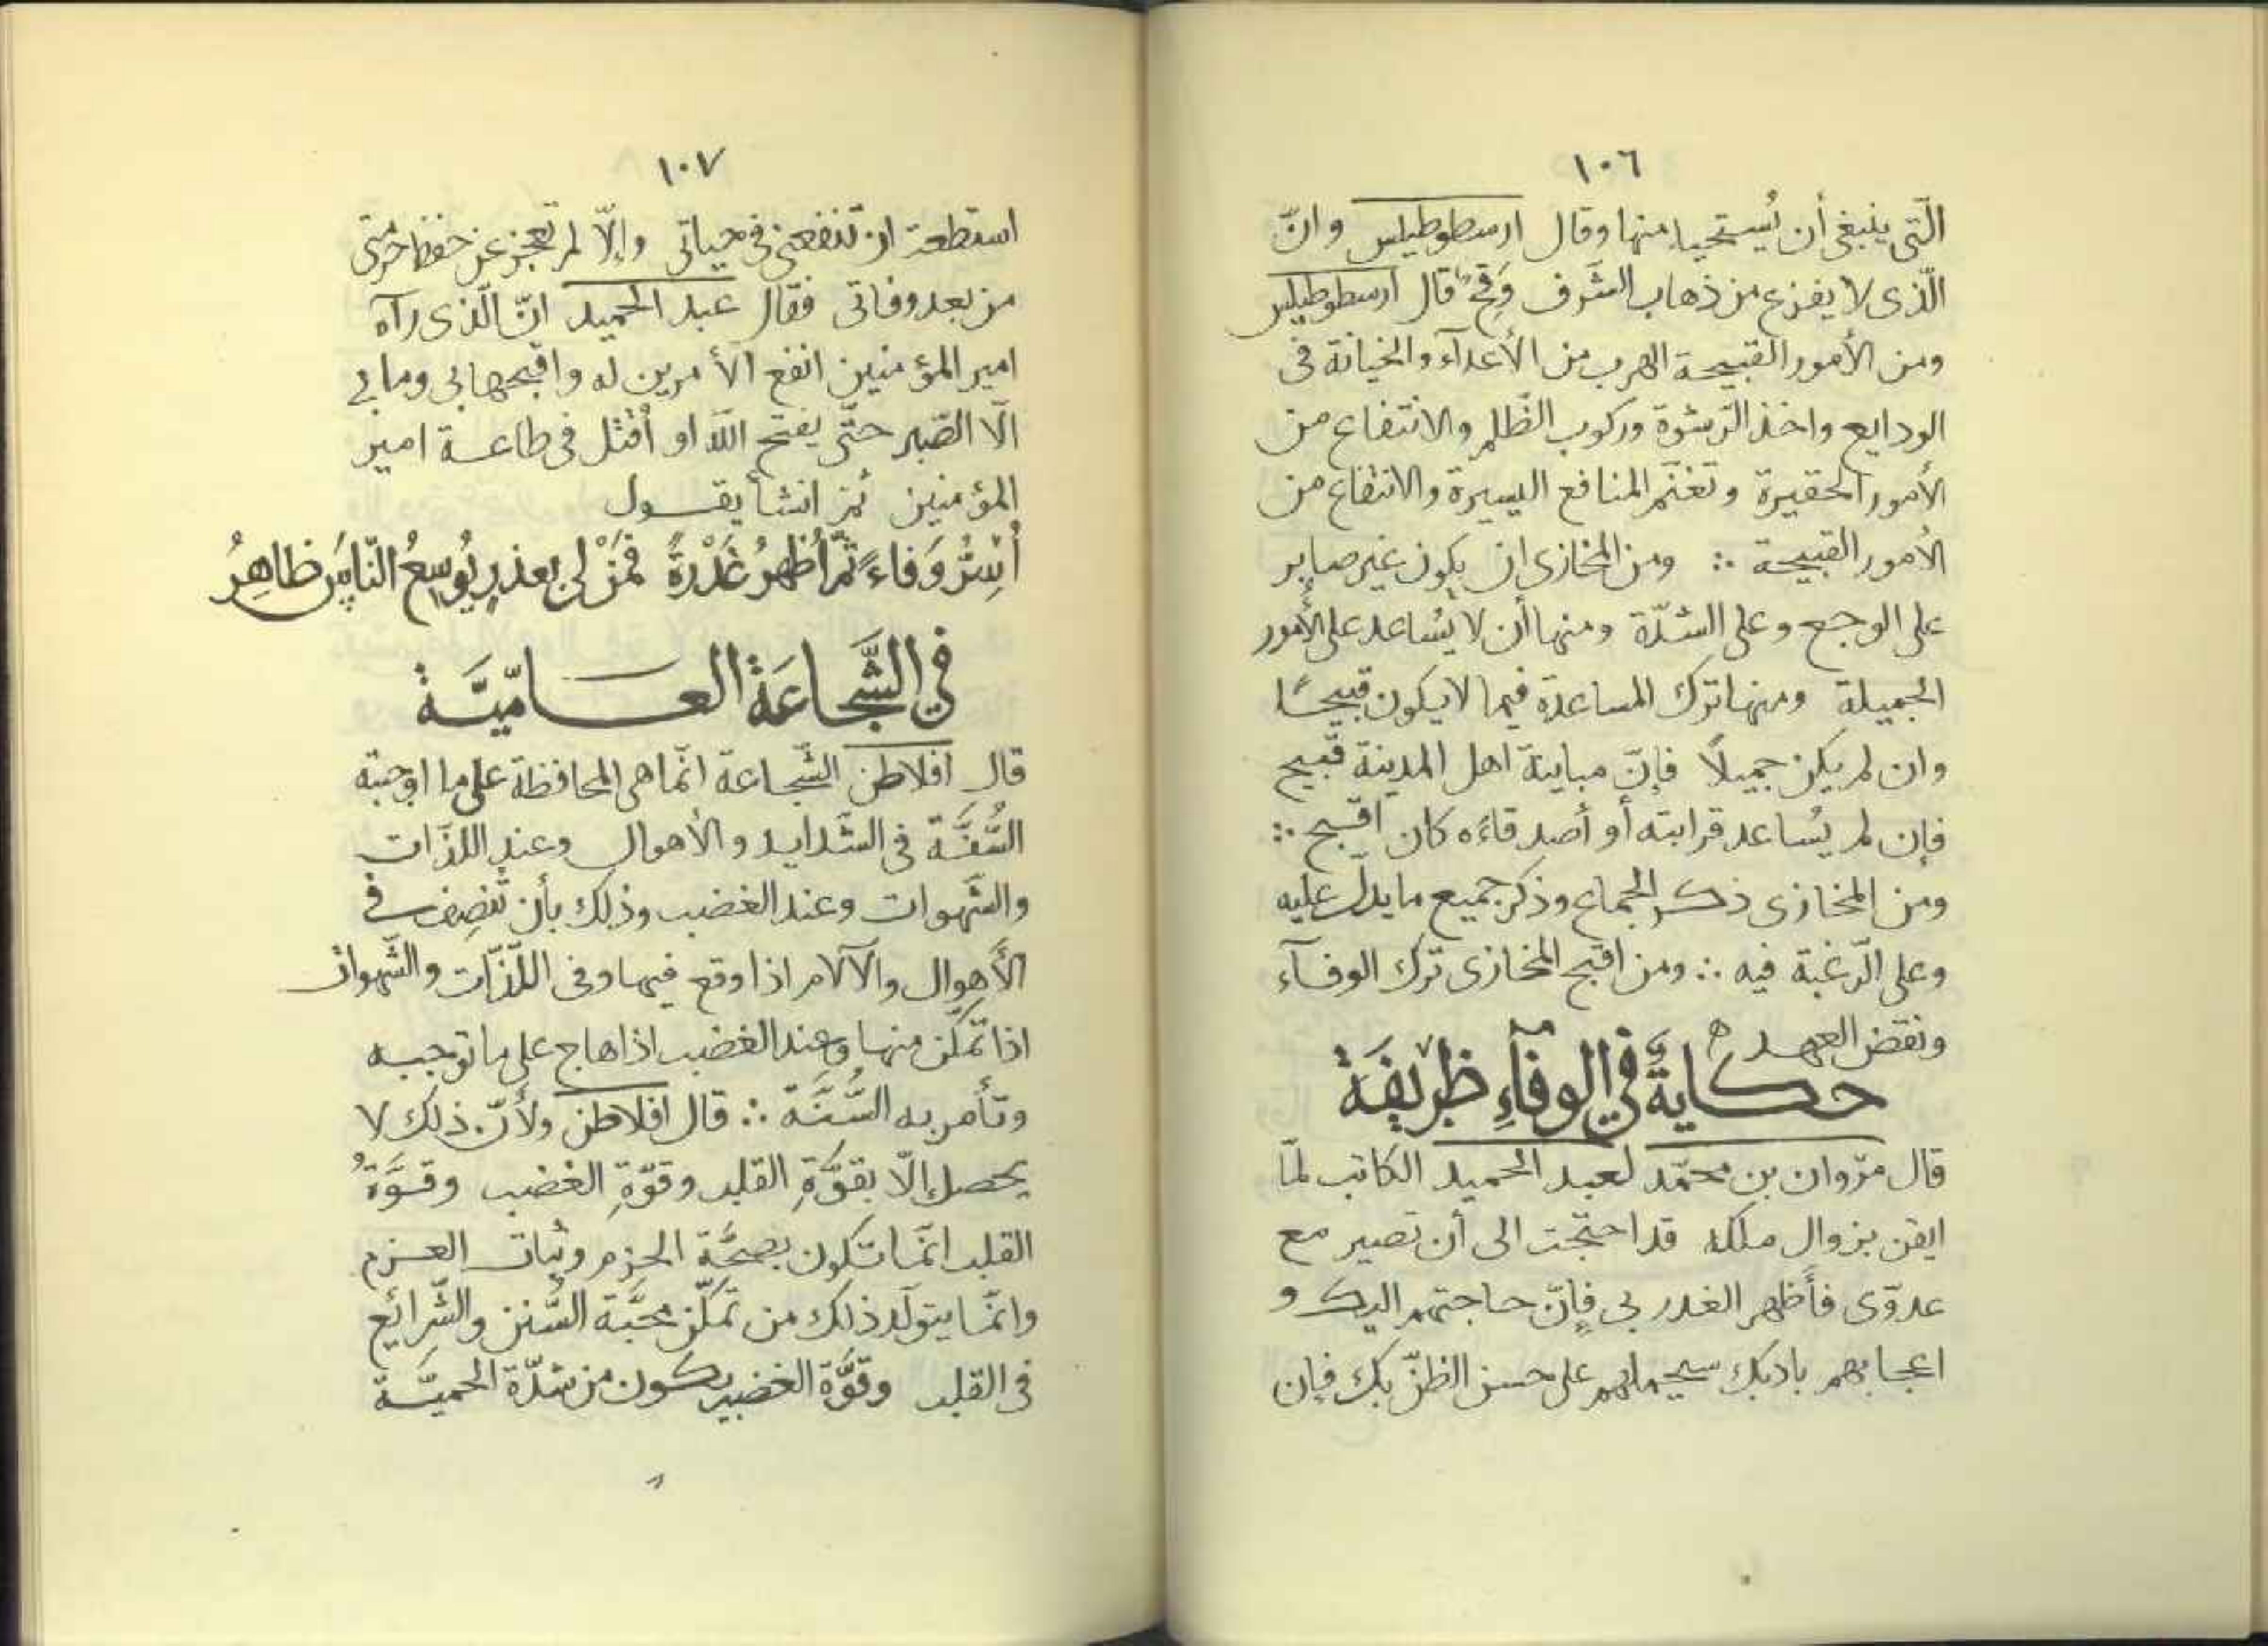 ١٠٦
الّتى ينبغى أن يُستحيا منها وقال ارسطوطيلس وانّ
الّذى لا يفزع من ذهاب الشّرف وَقِحٌ قال ارسطوطيلس
ومن الأمور القبيحة الهرب من الأعدآء والخيانة فى
الودايع واخذ الرّشوة وركوب الظّلم والانتفاع من
الأمور الحقيرة وتغنّم المنافع اليسيرة والانتفاع من
الأمور القبيحة ∴ ومن المخازى ان يكون غير صابر
على الوجع وعلى الشدّة ومنها أن لا يُساعد على الأمور
الجميلة ومنها ترك المساعدة فيما لا يكون قبيحًا
وان لم يكن جميلاً فإنّ مباينة اهل المدينة قبيح
فإن لم يُساعد قرابته أو أصدقاءَه كان اقبح ∴
ومن المخازى ذكر الجماع وذكر جميع ما يدلّ عليه
وعلى الرّغبة فيه ∴ ومن اقبح المخازى ترك الوفآء
ونقض العهد ه
حكايةٌ في الوفآءِ ظريفَة
قال مرْوان بن محمّد لعبد الحميد الكاتب لمّا
ايقن بزوال ملكه قد احتجت الى أن تصير مع
عدوّى فأَظهر الغدر بى فإنّ حاجتهم اليك و
اعجابهم بادبك سيحملهم على حسن الظنّ بك فإن
١٠٧
استطعت ان تنفعنى فى حياتى وإلّا لم تعجز عن حفظ حرمتى
من بعد وفاتى فقال عبد الحميد انّ الّذى رآه
امير المؤمنين انفع الأمرين له واقبحهما بى وما بى
الّا الصّبر حتّى يفتح اللّه او أُقتل فى طاعة امير
المؤمنين ثمّ انشأ يقول
أُسِرُّ وَفاءً ثمّ أُظهرُ غَدْرةً فمَنْ لى بعذرٍ يُوسِعُ النّاسَ ظاهِرُ
في الشَّجاعَة العامّيَّة
قال افلاطن الشّجاعة انّما هى المحافظة على ما اوجبته
السُّنَّة فى الشّدايد والأهوال وعند اللذّات
والشّهوات وعند الغضب وذلك بأن
الأهوال والآلام اذا وقع فيها وفى اللّذّات والشّهوات
اذا تمكّن منها وعند الغضب اذا هاج على ما توجبه
وتأمر به السُّنَّة ∴ قال افلاطن ولأنّ ذلك لا
يحصل إلّا بقوّةِ القلب وقوّةِ الغضب وقوَّةُ
القلب انّما تكون بصحَّة الحزم وثبات العزم
وانّما يتولّد ذلك من تمكّن محبَّة السُّنن والشّرائع
فى القلب وقوَّة الغضب يكون من شدّة الحميّة